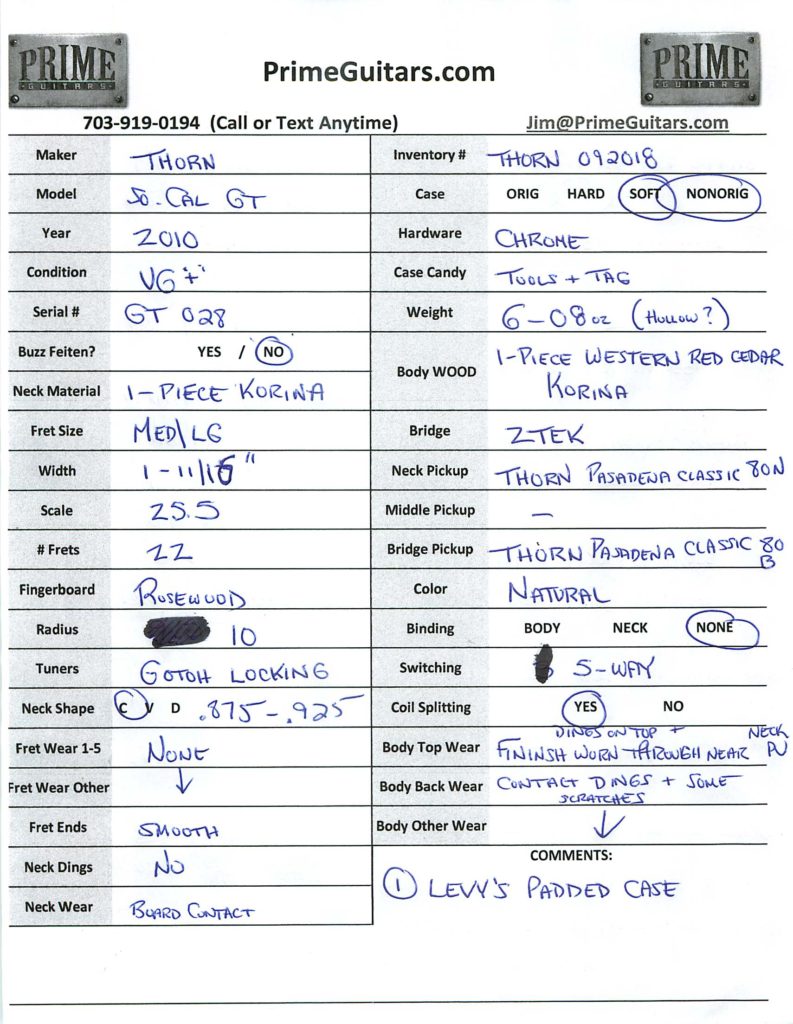 PRIME
GUITARS
PrimeGuitars.com
PRIME
GUITARS
703-919-0194 (Call or Text Anytime)
Jim@PrimeGuitars.com
Maker THORN
Model SO. CAL GT
Year 2010
Condition VG "+"
Serial # GT 028
Buzz Feiten? YES / NO
Neck Material 1-PIECE KORINA
Fret Size MED\LG
Width 1-11/16"
Scale 25.5
# Frets 22
Fingerboard ROSEWOOD
Radius 10
Tuners GOTOH LOCKING
Neck Shape C V D .875-.925
Fret Wear 1-5 NONE
Fret Wear Other ↓
Fret Ends SMOOTH
Neck Dings NO
Neck Wear BOARD CONTACT
Inventory # THORN 092018
Case ORIG HARD SOFT NONORIG
Hardware CHROME
Case Candy TOOLS + TAG
Weight 6-08oz (HOLLOW?)
Body WOOD 1-PIECE WESTERN RED CEDAR
KORINA
Bridge ZTEK
Neck Pickup THORN PASADENA CLASSIC 80N
Middle Pickup —
Bridge Pickup THORN PASADENA CLASSIC 80
B
Color NATURAL
Binding BODY NECK NONE
Switching 5-WAY
Coil Splitting YES NO
DINGS ON TOP + NECK
Body Top Wear FININSH WORN THROUGH NEAR PU
Body Back Wear CONTACT DINGS + SOME
SCRATCHES
Body Other Wear ↓
COMMENTS:
1 LEVY'S PADDED CASE